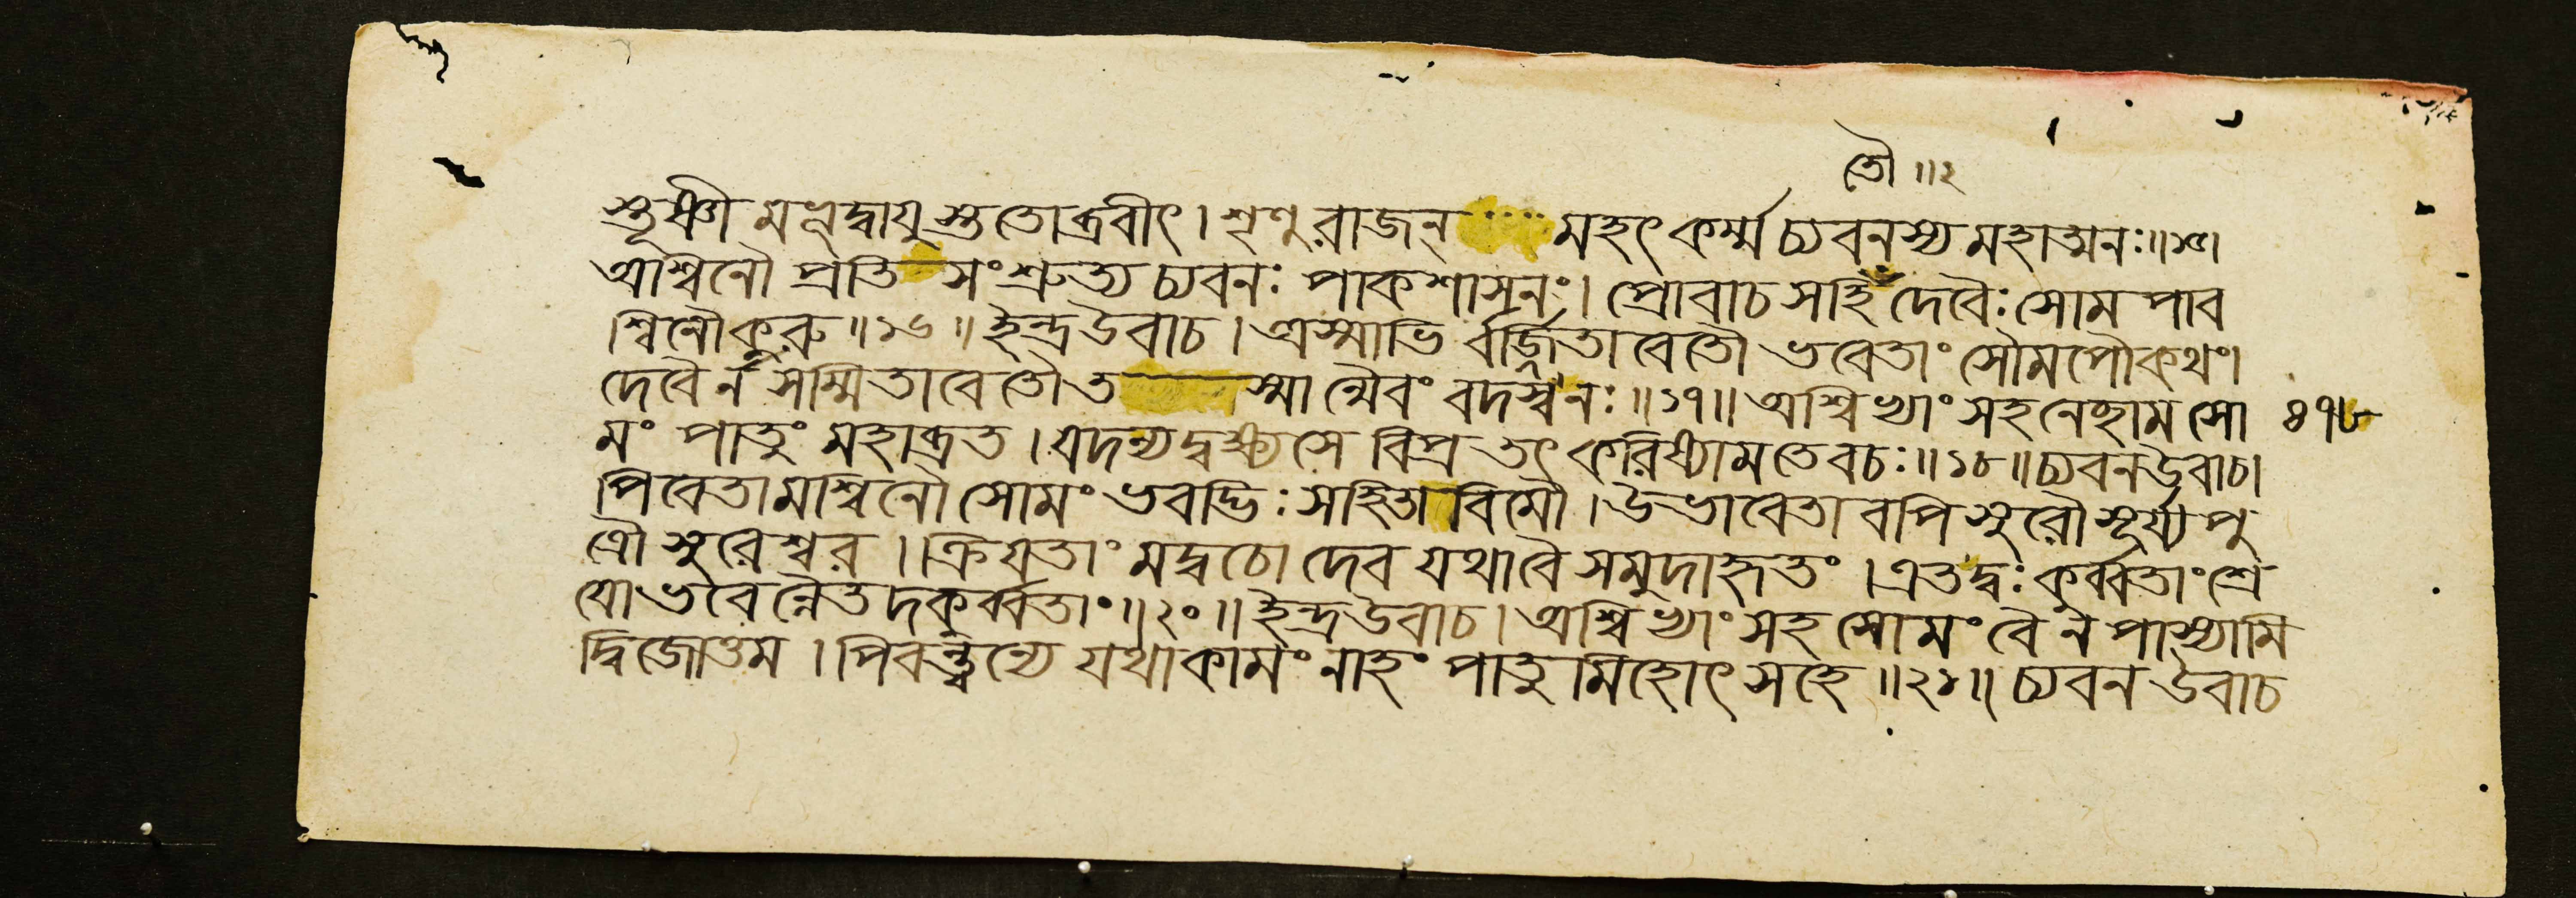 তৌ ॥২
স্তূষ্ণীমভূদ্বায়ুস্ততোব্রবীৎ। শৃণু রাজন্ মহৎ কর্ম্ম চ্যবনস্য মহাত্মনঃ॥১৫।
অশ্বিনৌ প্রতিসংশ্রুত্য চ্যবনঃ পাকশাসনং। প্রোবাচ সহিতং দেবৈঃ সোমপাব
শ্বিনৌ কুরু॥১৬॥ ইন্দ্র উবাচ। অস্মাভি র্বর্জ্জিতাবেতৌ ভবেতাং সোমপৌ কথং।
দেবৈর্ন সম্মিতাবেতৌ তস্মান্মৈবং বদস্ব নঃ॥১৭॥ অশ্বিভ্যাং সহ নেচ্ছামি সো
মং পাতুং মহাব্রত। যদন্যদ্বক্ষ্যসে বিপ্র তৎ করিষ্যাম তে বচঃ॥১৮॥ চ্যবন উবাচ।
পিবেতামশ্বিনৌ সোমং ভবদ্ভিঃ সহিতাবিমৌ। উভাবেতাবপি সুরৌ সূর্য্যপু
ত্রৌ সুরেশ্বর॥ ক্রিয়তাং মদ্বচো দেব যথা বৈ সমুদাহৃতং। এতদ্বঃ কুর্ব্বতাং শ্রে
যো ভবেন্নৈতদকুর্ব্বতাং॥২০॥ ইন্দ্র উবাচ। অশ্বিভ্যাং সহ সোমং বৈ ন পাস্যামি
দ্বিজোত্তম। পিবন্ত্বন্যে যথাকামং নাহং পাতুমিহোৎসহে॥২১॥ চ্যবন উবাচ